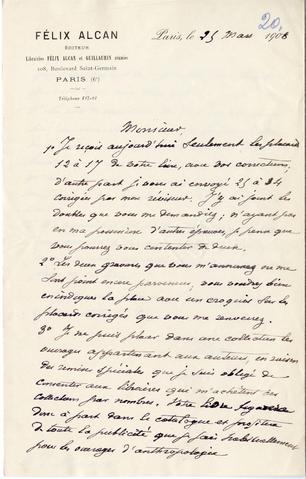 20.
FÉLIX ALCAN
ÉDITEUR
Librairies FÉLIX ALCAN et GUILLAUMIN réunies
108, Boulevard Saint-Germain
PARIS (6e)
Téléphone
Paris, le 25 Mars 1908
Monsieur
1o Je reçois aujourd'hui seulement les placards
12 à 17 de votre livre, avec vos corrections,
d'autre part je vous ai envoyé 25 à 34
corrigés par mon réviseur. J'y ai joint les
doubles que vous me demandiez ; n'ayant pas
en ma possession d'autres épreuves, je pense que
vous pourrez vous contenter de deux.
2o Les deux gravures que vous m'annoncez ne me
sont point encore parvenues, vous voudrez bien
en indiquer la place avec un croquis sur les
placards corrigés que vous me renverrez.
3o Je ne puis placer dans une collection les
ouvrages appartenant aux auteurs, en raison
des remises spéciales que je suis obligé de
consentir aux libraires qui m'achètent des
collections par nombres. Votre livre figurera
donc à part dans le catalogue et profitera
de toute la publicité que je fais habituellement
pour les ouvrages d'anthropologie